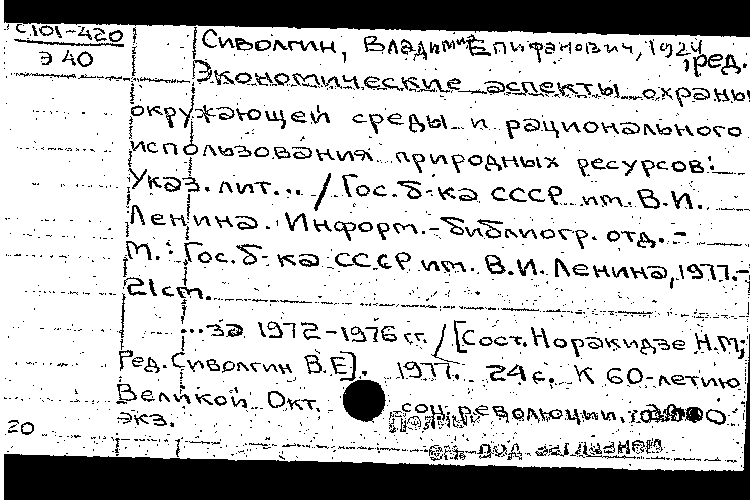 С101-420
Э 40
Сиволгин, Владимир Епифанович, 1924, ред.
Экономические аспекты охраны
окружающей среды и рационального
использования природных ресурсов:
Указ. лит... / Гос. б-ка СССР им. В.И.
Ленина. Информ.-библиогр. отд. -
М.: Гос. б-ка СССР им. В.И. Ленина, 1977.-
21 cm.
...за 1972-1976 гг. / [Сост. Норакидзе Н.М;
Ред. Сиволгин В.Е]. 1977. 24 с. К 60-летию
Великой Окт. соц. революции.
экз.
20